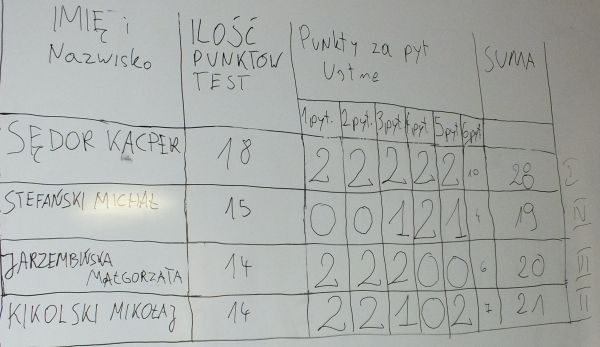 IMIĘ i Nazwisko ILOŚĆ PUNKTÓW TEST Punkty za pyt Ustne SUMA
1 pyt. 2 pyt. 3 pyt 4 pyt. 5 pyt 6 pyt
SĘDOR KACPER 18 2 2 2 2 2 10 28 I
STEFAŃSKI MICHAŁ 15 0 0 1 2 1 4 19 IV
JARZEMBIŃSKA MAŁGORZATA 14 2 2 2 0 0 6 20 III
KIKOLSKI MIKOŁAJ 14 2 2 1 0 2 7 21 II